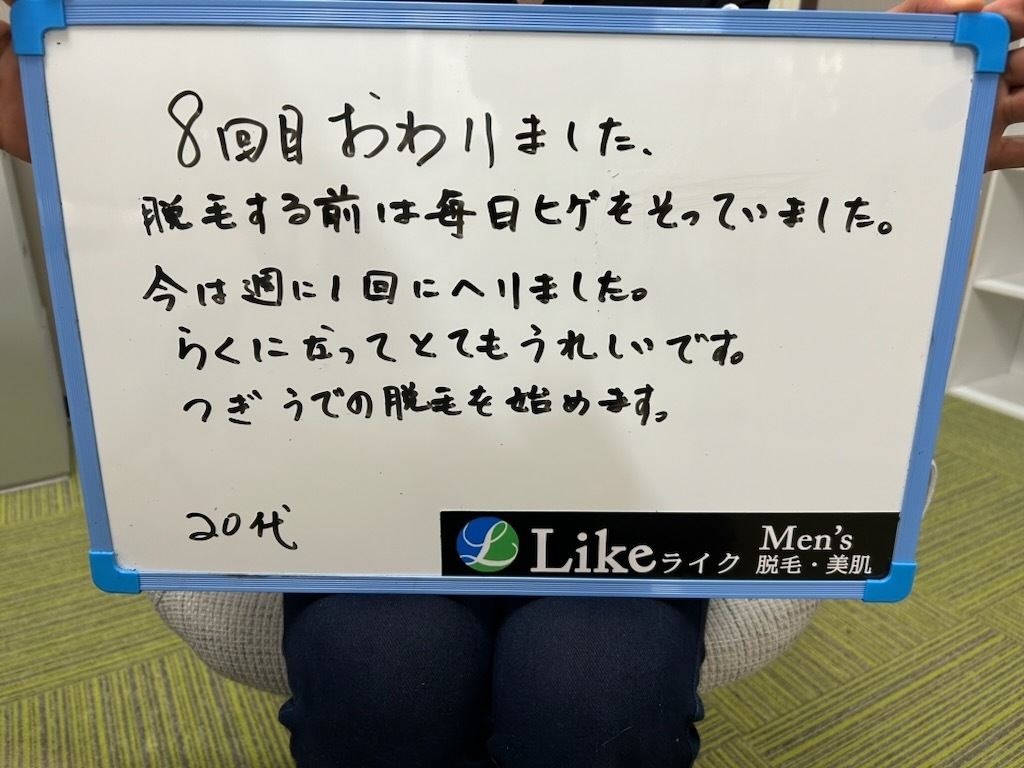 8回目おわりました、
脱毛する前は毎日ヒゲをそっていました。
今は週に1回にへりました。
らくになってとてもうれしいです。
つぎうでの脱毛を始めます。
20代
L Like ライク Men's 脱毛・美肌